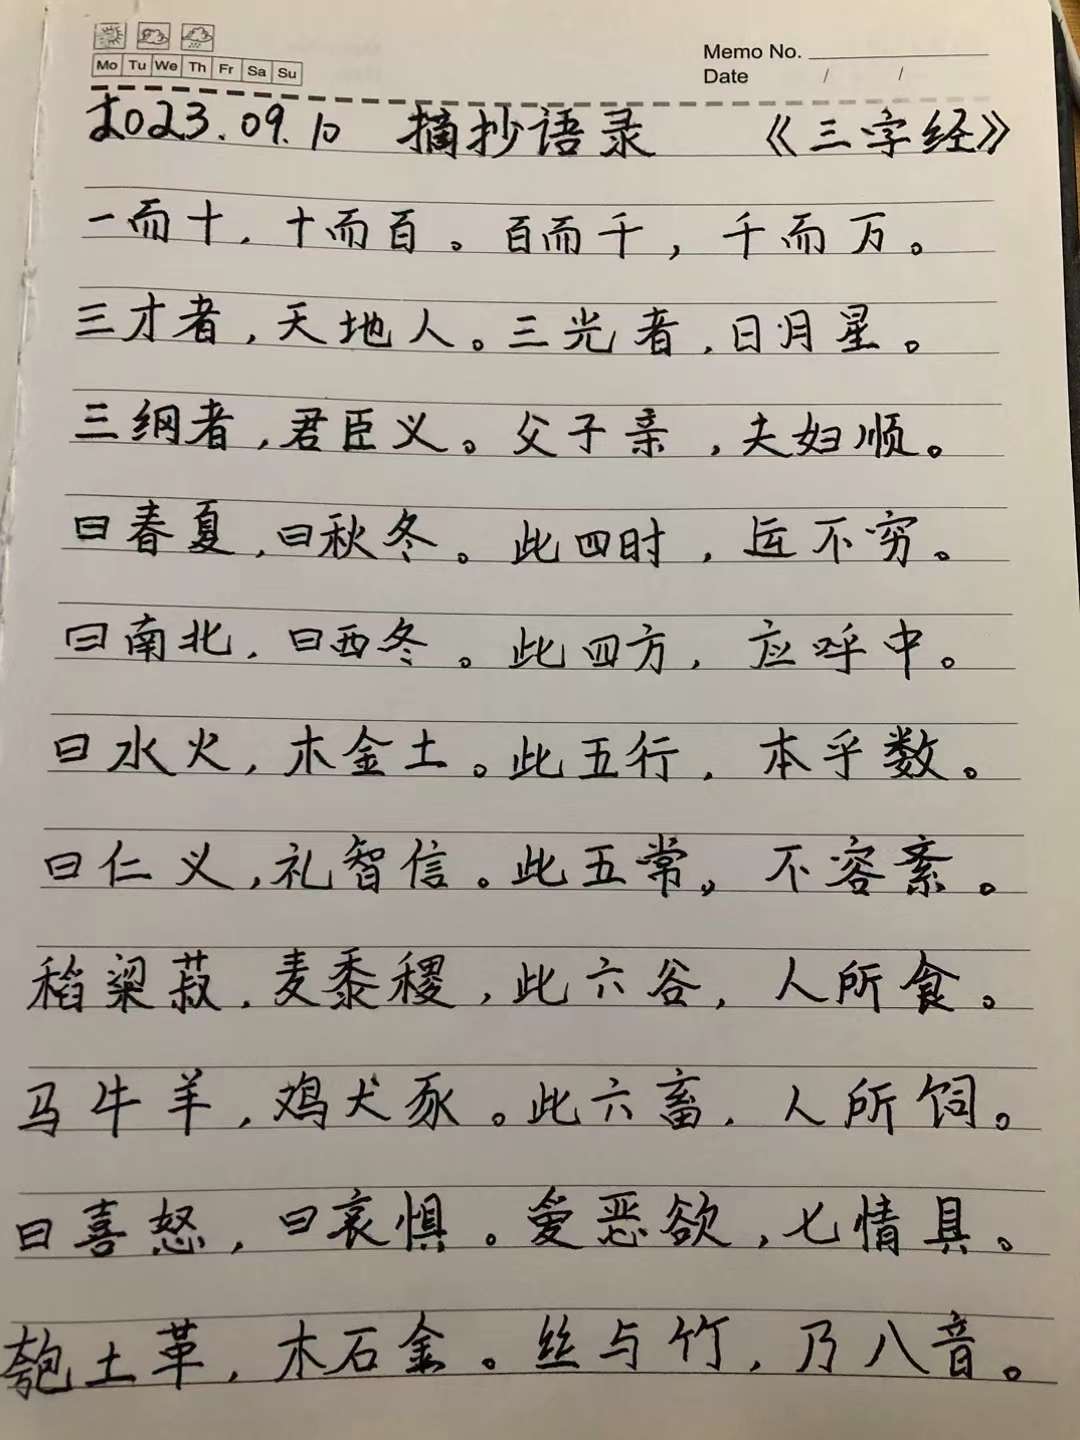 Mo Tu We Th Fr Sa Su
Memo No.
Date / /
2023.09.10 摘抄语录 《三字经》
一而十，十而百。百而千，千而万。
三才者，天地人。三光者，日月星。
三纲者，君臣义。父子亲，夫妇顺。
曰春夏，曰秋冬。此四时，运不穷。
曰南北，曰西冬。此四方，应呼中。
曰水火，木金土。此五行，本乎数。
曰仁义，礼智信。此五常，不容紊。
稻粱菽，麦黍稷，此六谷，人所食。
马牛羊，鸡犬豕。此六畜，人所饲。
曰喜怒，曰哀惧。爱恶欲，七情具。
匏土革，木石金。丝与竹，乃八音。